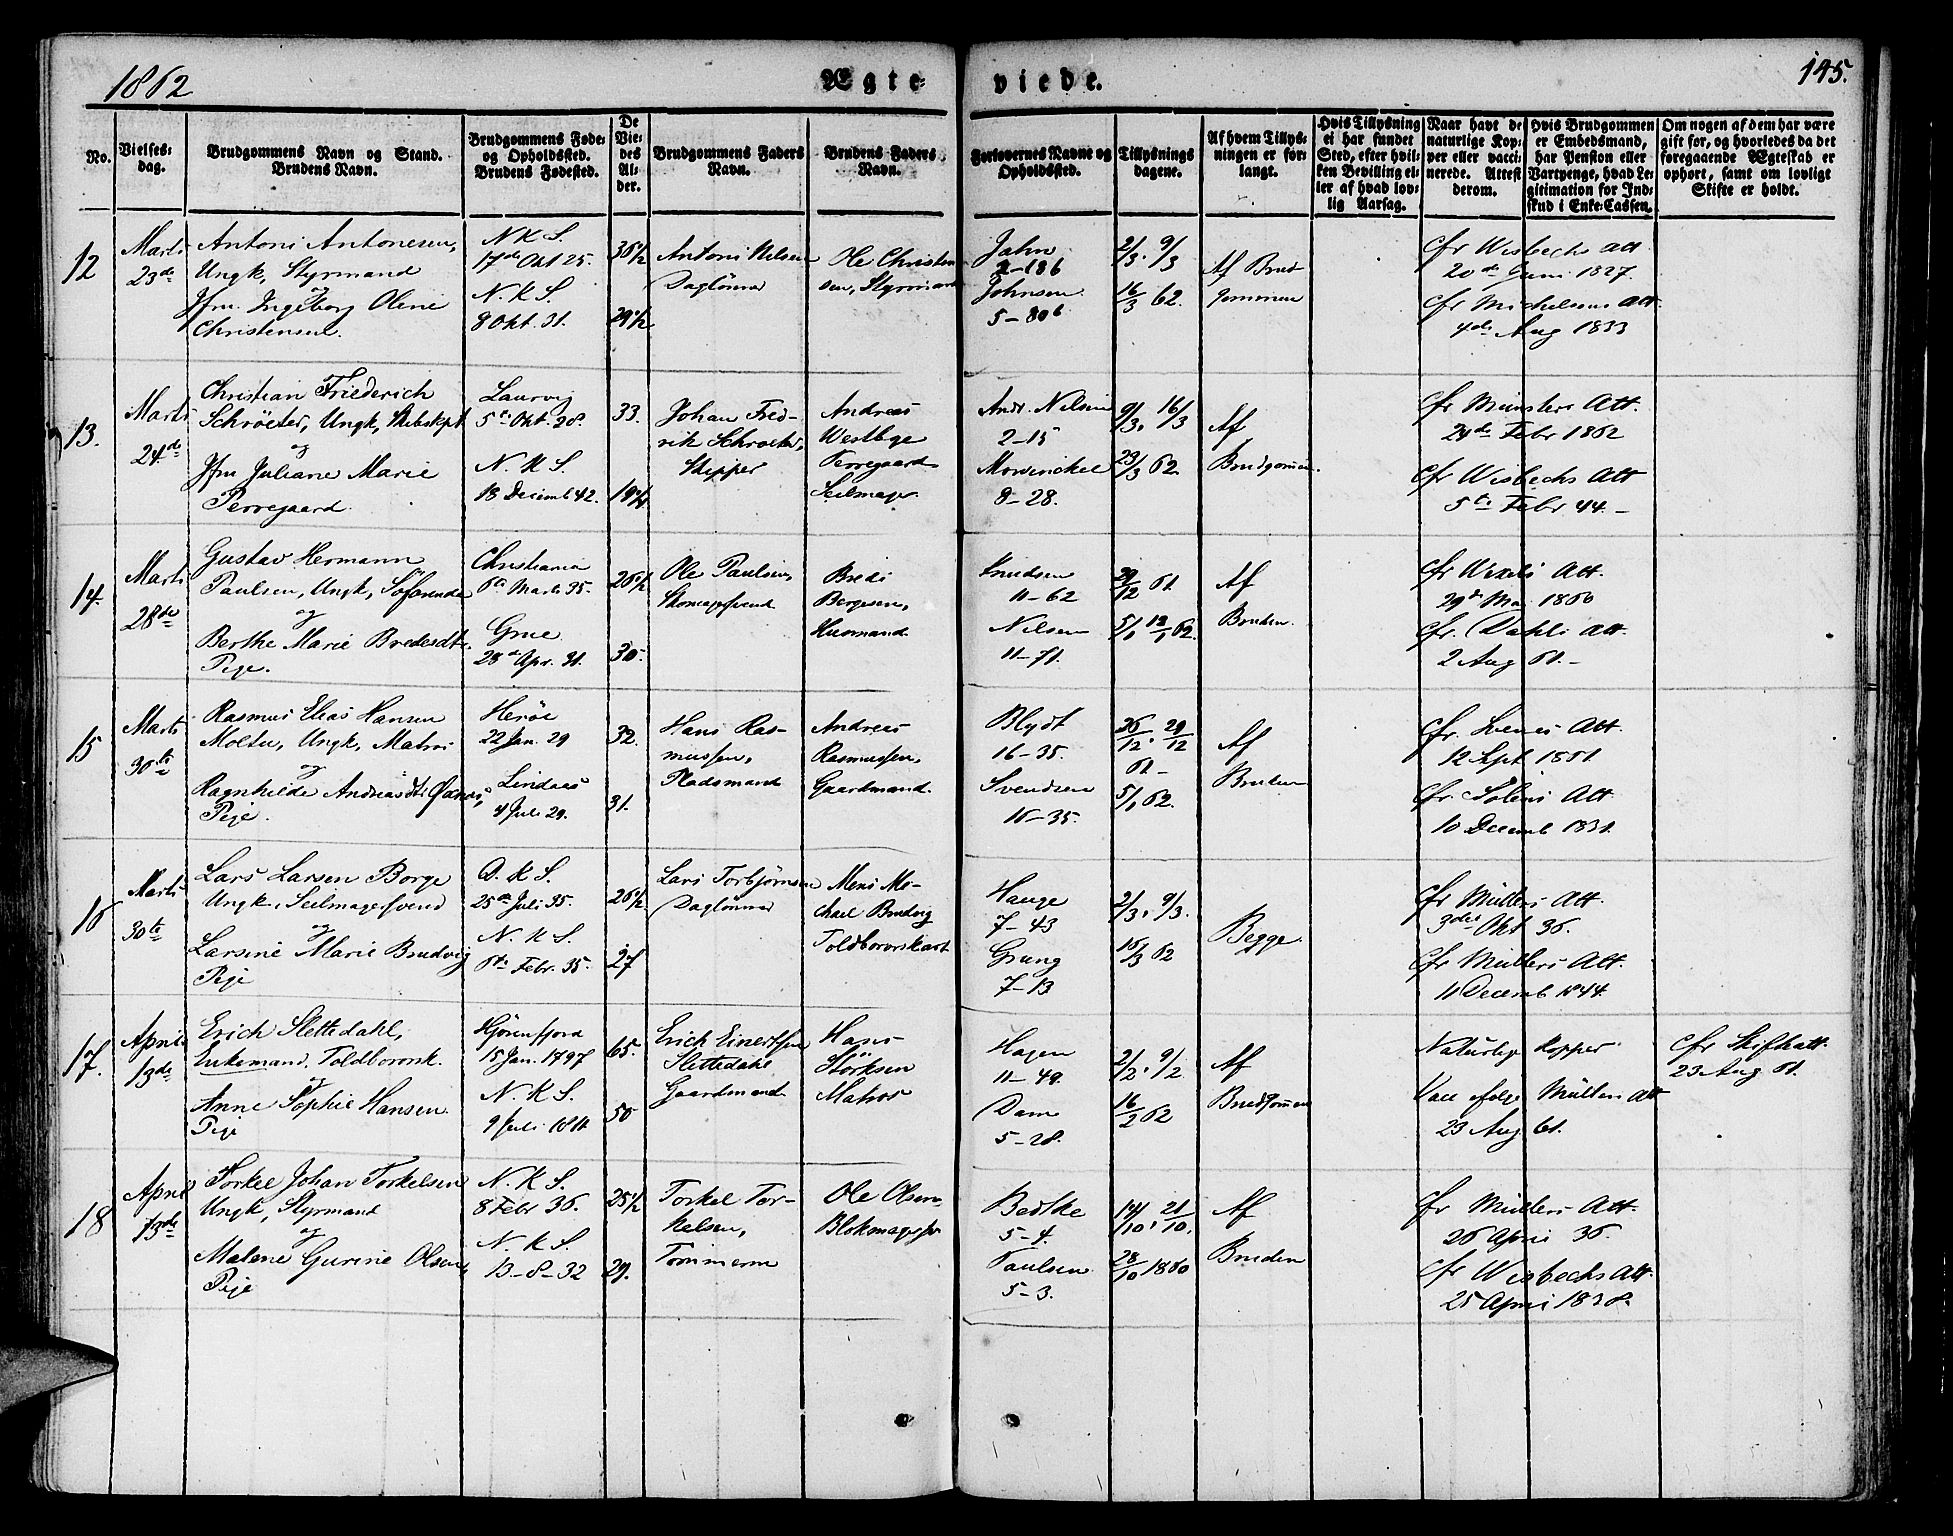 1862
Ægte
viede.
145.
No.
Vielses-
dag.
Brudgommens Navn og Stand.
Brudens Navn.
Brudgommens Føde-
og Opholdssted.
Brudens Fødested.
De
Vie-
des
Al-
der.
Brudgommens Faders
Navn.
Brudens Faders
Navn.
Forlovernes Navne og
Opholdssted.
Tillysnings
dagene.
Af hvem Tillys-
ningen er for-
langt.
Hvis Tillysning
ei har fundet
Sted, efter hvil-
ken Bevilling el-
ler af hvad lov-
lig Aarsag.
Naar havt de
naturlige Kop-
per eller vacci-
nerede. Attest
derom.
Hvis Brudgommen
er Embedsmand,
har Pension eller
Vartpenge, hvad Le-
gitimation for Ind-
skud i Enke-Cassen.
Om nogen af dem har være
gift før, og hvorledes da det
foregaaende Ægteskab er
ophørt, samt om lovligt
Skifte er holdt.
12
Marti
23de
Antoni Antonesen,
Ungk, Styrmand
og
Jfm. Ingeborg Oline
Christensen.
N. K. S.
17de Okt 25.
N. K. S.
8 Okt. 31.
36 1/2
29 1/2
Antoni Nilsen
Daglønner
Ole Christen-
sen, Styrmand
Jahn
2-186
Johnsen
5-806
2/3. 9/3
16/3 62.
Af Brud
gommen
cfr Wisbechs Att
20de Juni 1827.
cfr Michelsens Att.
4de Aug 1833
13.
Marti
24de
Christian Friederich
Schröeter, Ungk, Skibskpt
og
Jfm Juliane Marie
Perregaard.
Laurvig
5te Okt. 28.
N. K. S.
18 Decemb 42.
33.
19 1/4
Johan Fred-
rik Schroeter,
Skipper
Andreas
Westbye
Perregaard
Seilmager
Andr. Nilsen
2-15
Mowinckel
8-28.
9/3. 16/3
23/3 62.
Af
Brudgommen.
cfr Münsters Att.
24de Febr 1862
cfr Wisbechs Att
5te Febr 44.-
14.
Marti
28de
Gustav Hermann
Paulsen, Ungk, Söfarende
og
Berthe Marie Bredesdtr.
Pige.
Christiania
6te Marts 35.
Grue
28de Apr. 31.
26 1/2
30.
Ole Paulsen,
Skomagersvend
Bredi
Borgesen,
Husmand
Knudsen
11-62
Nilsen
11-71.
29/12 61.
5/1 12/1 62.
Af
Bruden.
cfr Wexels Att.
29de Mai 1860
cfr. Dahls Att.
2 Aug 61.-
15
Marti
30te
Rasmus Elias Hansen
Moltu, Ungk, Matros
og
Ragnhilde Andreasdtr
Pige.
Heröe
22 Jan. 29
Lindaas
4 Juli 29.
32.
31.
Hans Ras-
mussen,
Pladsmand
Andreas
Rasmussen,
Gaardmand.
Blydt
16-35.
Svendsen
16-35.
26/12. 29/12
61-
5/1 62.
Af
Bruden
cfr. Att
12 Sept 1851
cfr. Att.
10 Decemb 1831.
16
Marti
30te
Lars Larsen Borge
Ungk, Seilmagersvend
og
Larsine Marie Brudvig
Pige
D. K. S.
25de Juli 35.
N. K. S.
6te Febr. 35.
26 1/2
27
Lars Torbjørnsen
Dagløuner
Mons Mi-
chael Brudvig
Toldboroerskarl
Hauge
7-43
Grung
7-13
2/3. 9/3.
16/3 62
Begge.
cfr Müllers Att.
3die Okt 36.
cfr Müllers Att.
11 Decemb 1844.
17.
April
13de
Erich Slettedahl,
Enkemand, Toldbororsk.
og
Anne Sophie Hansen
Pige
Hjörenfjord
15 Jan. 1797
N. K. S.
9 Juli 1811
65.
50
Erich Einertsen
Slettedahl
Gaardmand
Hans
Störksen
Matros
Hagen
11-49.
Dam
5-28.
2/2. 9/2
16/2 62
Af
Brudgommen
Naturlige Kopper
Vacc ifølge Müllers Att
23 Aug 61.
Cfr Skifteatt.
23 Aug 61.
18
April
13de
Torkel Johan Torkelsen
Ungk, Styrmand
og
Malene Gurine Olsen,
Pige
N. K. S.
8 Febr 36.
N. K. S.
13-8-32
25 1/2
29.
Torkel Tor-
kelsen,
Tömmerm
Ole Olsen
Blokmager
Bedtke
5-4.
Paulsen
5-3.
14/10. 21/10.
28/10 1860
Af
Bruden
cfr Müllers Att.
26 April 36.
cfr Wisbechs Att.
25 April 1838.